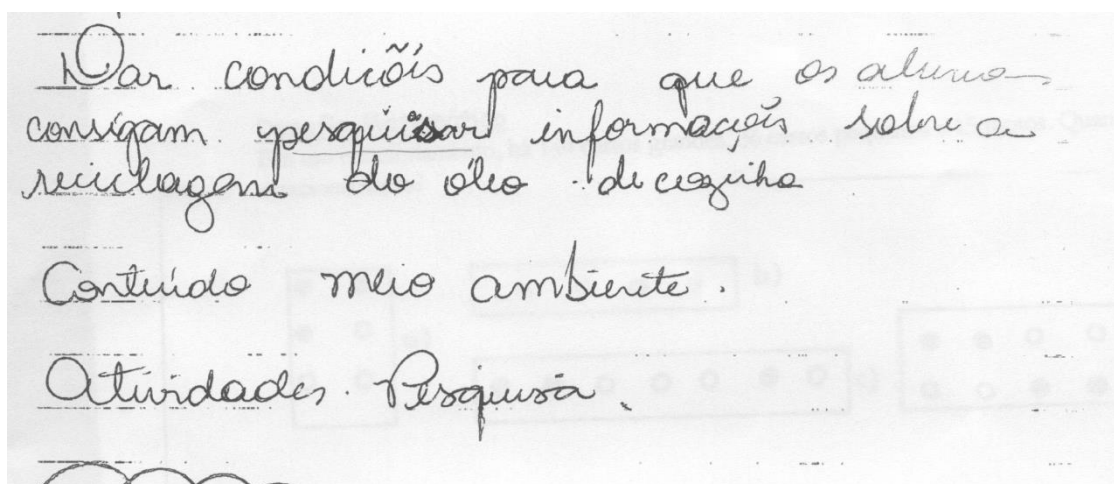 Dar condicõis para que os alunos
consigam pesquisar informaçõis sobre a
reciclagem do óleo de cozinha
Conteúdo meio ambiente.
Atividades. Pesquisa.